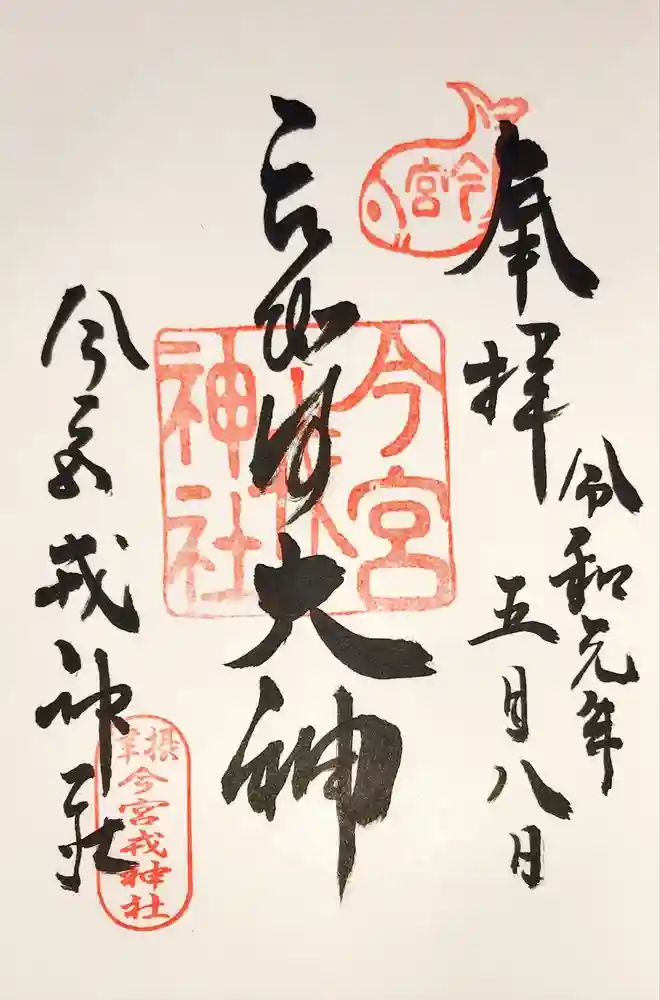 奉拝
令和元年
五月八日
今宮
大神
今宮戎神社
今宮戎神社
摂津
今宮戎神社